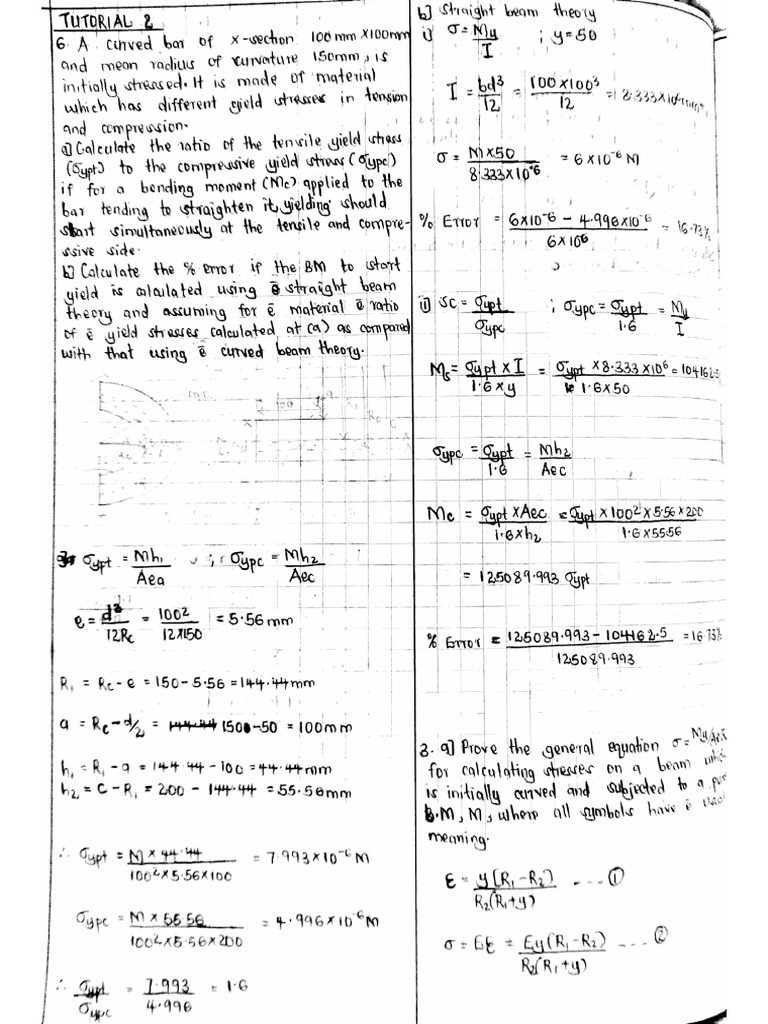 TUTORIAL 2
6. A curved bar of x-section 100mm x100mm
and mean radius of curvature 150mm, is
initially stressed. It is made of material
which has different yield stresses in tension
and compression.
a) Calculate the ratio of the tensile yield stress
(σypt) to the compressive yield stress (σypc)
if for a bending moment (Mc) applied to the
bar tending to straighten it, yielding should
start simultaneously at the tensile and compre-
ssive side.
b) Calculate the % error if the BM to start
yield is calculated using ē straight beam
theory and assuming for ē material ē ratio
of ē yield stresses calculated at (a) as compared
with that using ē curved beam theory.
100
σypt = Mh₁/Aea ; σypc = Mh₂/Aec
e = d²/12Rc = 100²/12x150 = 5.56mm
R₁ = Rc - e = 150 - 5.56 = 144.44mm
a = Rc - d/2 = 150 - 50 = 100mm
h₁ = R₁ - a = 144.44 - 100 = 44.44mm
h₂ = C - R₁ = 200 - 144.44 = 55.56mm
∴ σypt = M x 44.44/100²x5.56x100 = 7.993x10⁻⁶M
σypc = M x 55.56/100²x5.56x200 = 4.996x10⁻⁶M
∴ σypt/σypc = 7.993/4.996 = 1.6
b) Straight beam theory
i) σ = My/I ; y=50
I = bd³/12 = 100x100³/12 = 8.333x10⁶mm⁴
σ = Mx50/8.333x10⁶ = 6x10⁻⁶M
% Error = 6x10⁻⁶ - 4.996x10⁻⁶/6x10⁶ = 16.73%
ii) SC = σypt/σypc ; σypc = σypt/1.6 = My/I
Ms = σypt x I/1.6 x y = σypt x 8.333x10⁶/1.6x50 = 104162.5
σypc = σypt/1.6 = Mh₂/Aec
Mc = σypt x Aec/1.6xh₂ = σypt x 100²x5.56x200/1.6x55.56
= 125089.993 σypt
% Error = 125089.993 - 104162.5/125089.993 = 16.73%
3. a) Prove the general equation σ = My/
for calculating stresses on a beam which
is initially curved and subjected to a pure
B.M, M, where all symbols have ē usual
meaning.
ε = y(R₁-R₂)/R₂(R₁+y) ---- ①
σ = Eε = Ey(R₁-R₂)/R₂(R₁+y) ---- ②